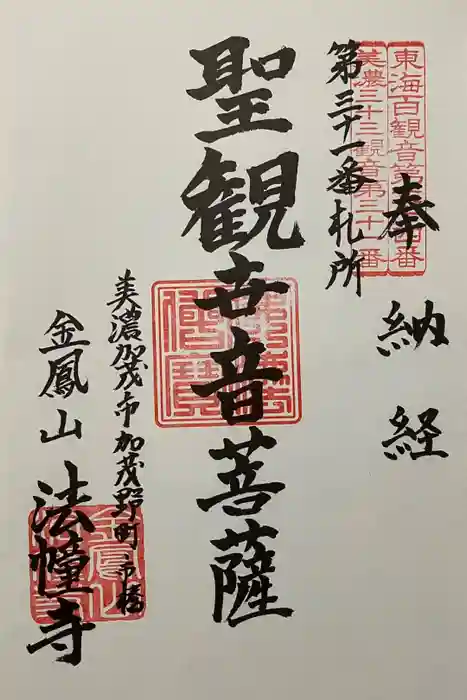 東海百観音第四番
美濃三十三観音第三十一番
奉納経
第三十一番札所
聖観世音菩薩
佛法僧寶
美濃加茂市加茂野町市橋
金鳳山 法幢寺